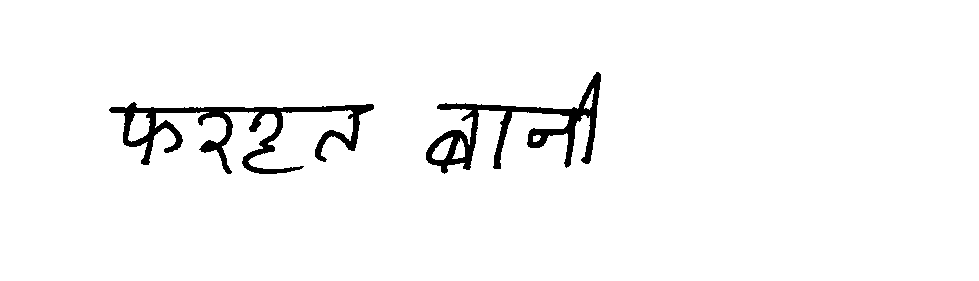 फरहत बानी